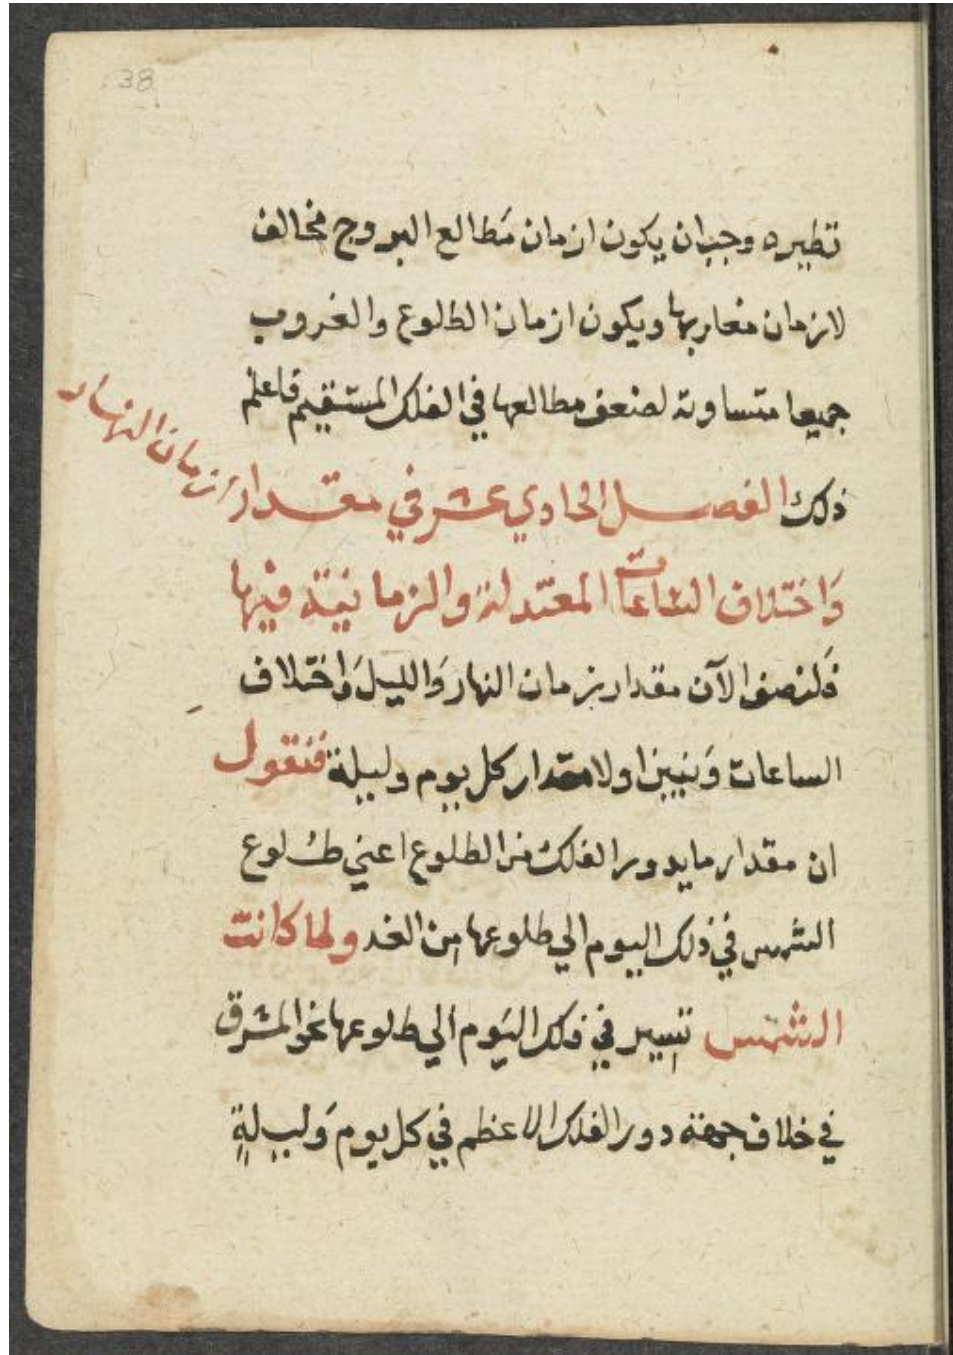 38
نظيره وجب ان يكون ازمان مَطالع البروج مخالف
لازمان مغاربها ويكون ازمان الطلوع والغروب
جميعا متساوية لضعف مطالعها في الفلك المستقيم فاعلم
ذلك الفصل الحادي عشر في مقدار ازمان النهار
وَاختلاف الساعات المعتدلة والزمانية فيها
فَلنصف الآن مقدار زمان النهار وَالليل وَاختلاف
الساعات وَنبين اولا مقدار كل يوم وليلة فنقول
ان مقدار ما يدور الفلك من الطلوع اعني طلوع
الشمس في ذلك اليوم الي طلوعها من الغد ولما كانت
الشمس تسير في ذلك اليَوم الي طلوعها نحو المشرق
في خلاف جهة دور الفلك الاعظم في كل يوم وَليلةٍ